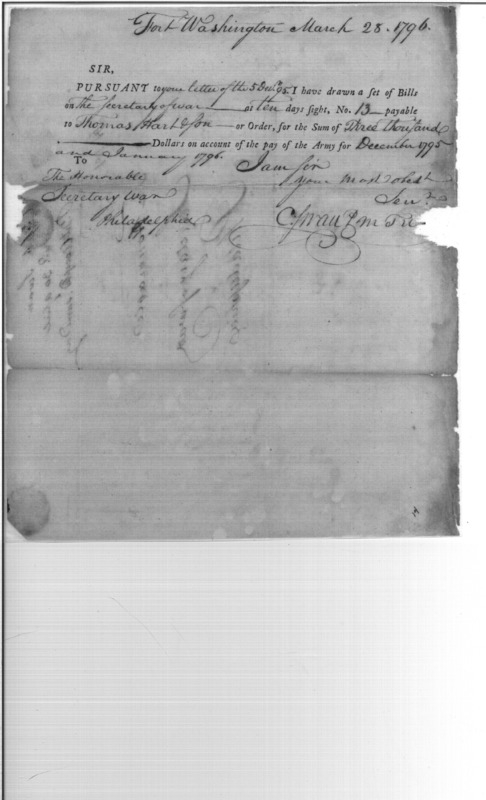 Fort Washington March 28. 1796.
SIR,
PURSUANT to your letter of the 5 Decr. 95. I have drawn a set of Bills
on the Secretary of war at ten days sight, No. 13 payable
to Thomas Hart & Son or Order, for the Sum of Three thousand
Dollars on account of the pay of the Army for December 1795
and January 1796. I am Sir
To
The Honorable your most obest
Secretary War Serv.
Philadelphia C Swan P M Tr